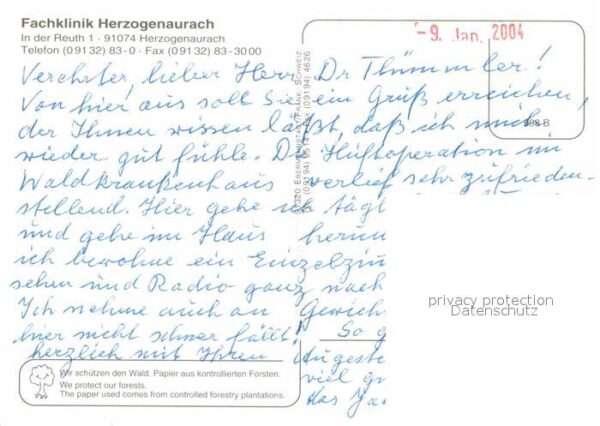 Fachklinik Herzogenaurach
In der Reuth 1 · 91074 Herzogenaurach
Telefon (0 91 32) 83-0 · Fax (0 91 32) 83-30 00
-9. Jan. 2004
Verehrter, lieber Herr Dr Thümmler!
Von hier aus soll Sie ein Gruß erreichen,
der Ihnen wissen läßt, daß ich mich
398-B
wieder gut fühle. Die Hüftoperation im
Waldkrankenhaus verlief sehr zufrieden-
stellend. Hier gehe ich tägl
und gehe im Haus herum
ich bewohne ein Einzelzim
sehen und Radio ganz nach
Ich nehme auch an Gewich
hier nicht schwer fällt! So g
herzlich mit Ihren Angeste
viel
das
privacy protection
Datenschutz
Wir schützen den Wald. Papier aus kontrollierten Forsten.
We protect our forests.
The paper used comes from controlled forestry plantations.